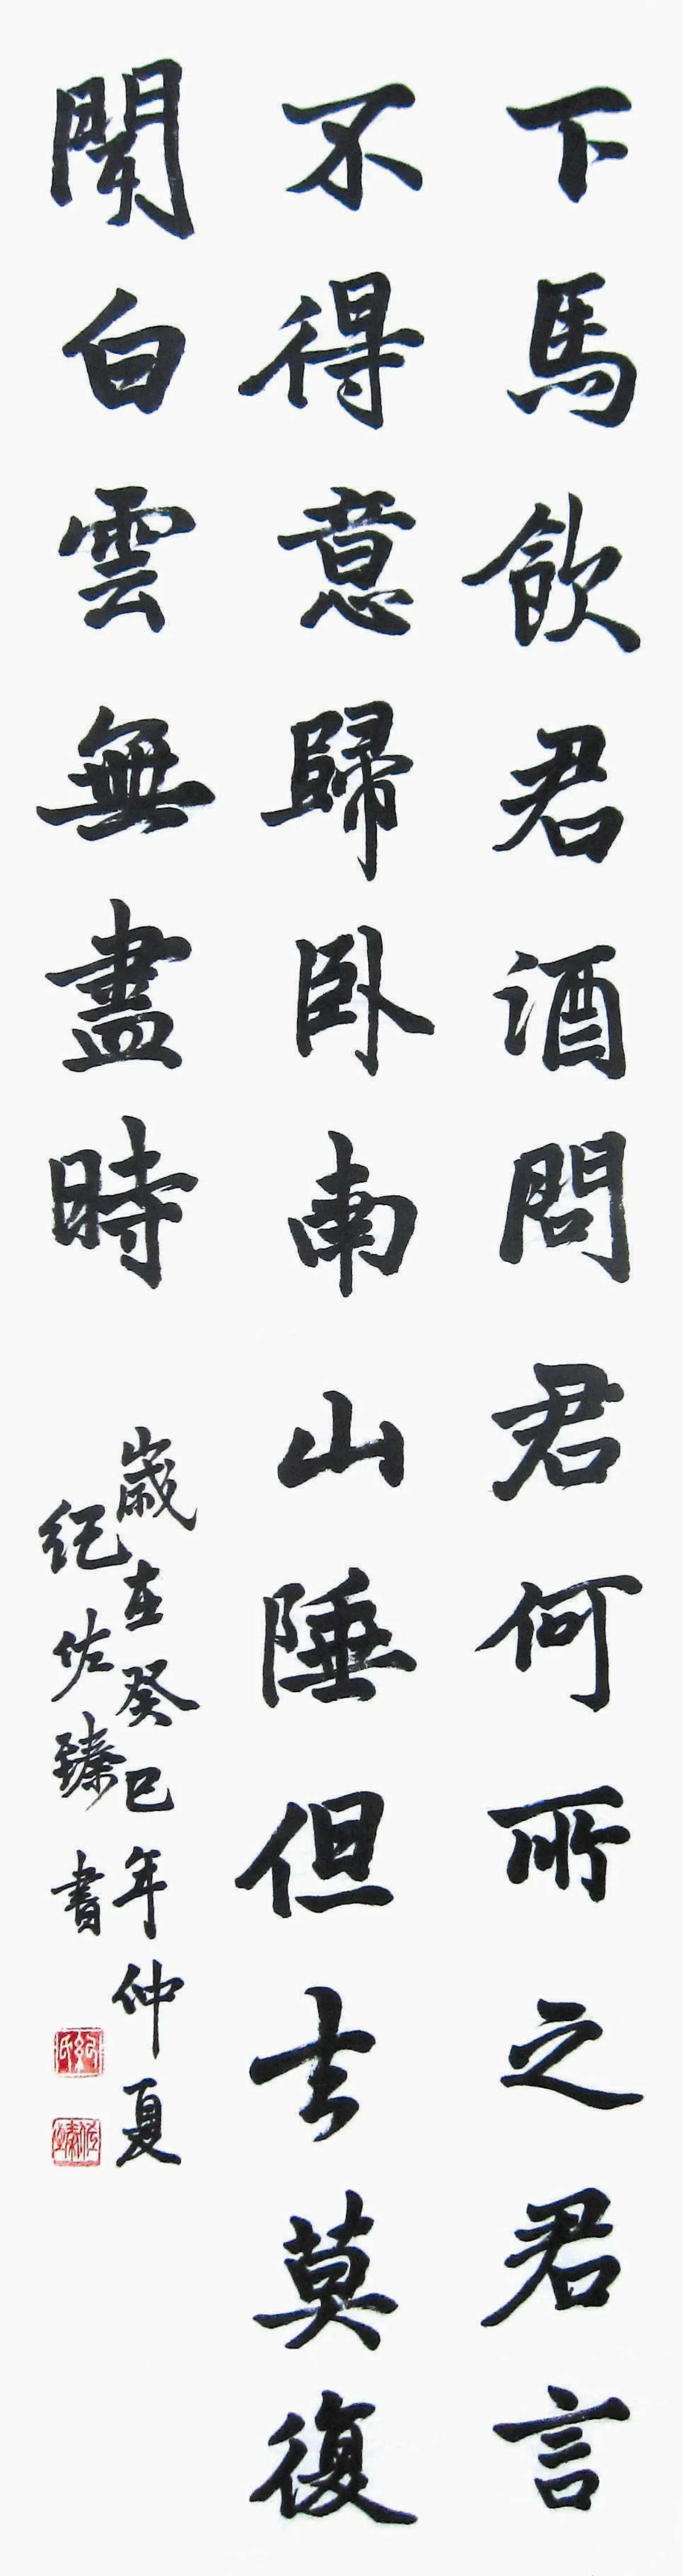 下馬飲君酒問君何所之君言
不得意歸卧南山陲但去莫復
聞白雲無盡時
歲在癸巳年仲夏
紀佐臻書
紀氏
佐臻